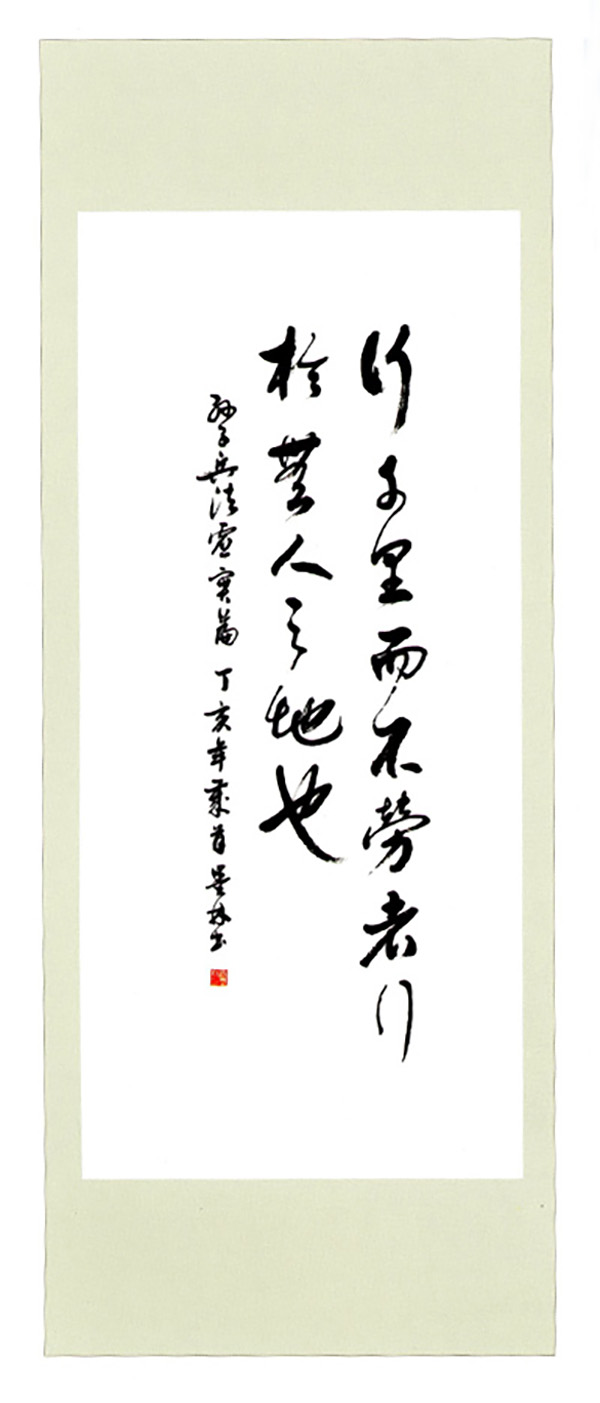 行千里而不勞者行
於無人之地也
孫子兵法虛實篇 丁亥年歲首墨林書